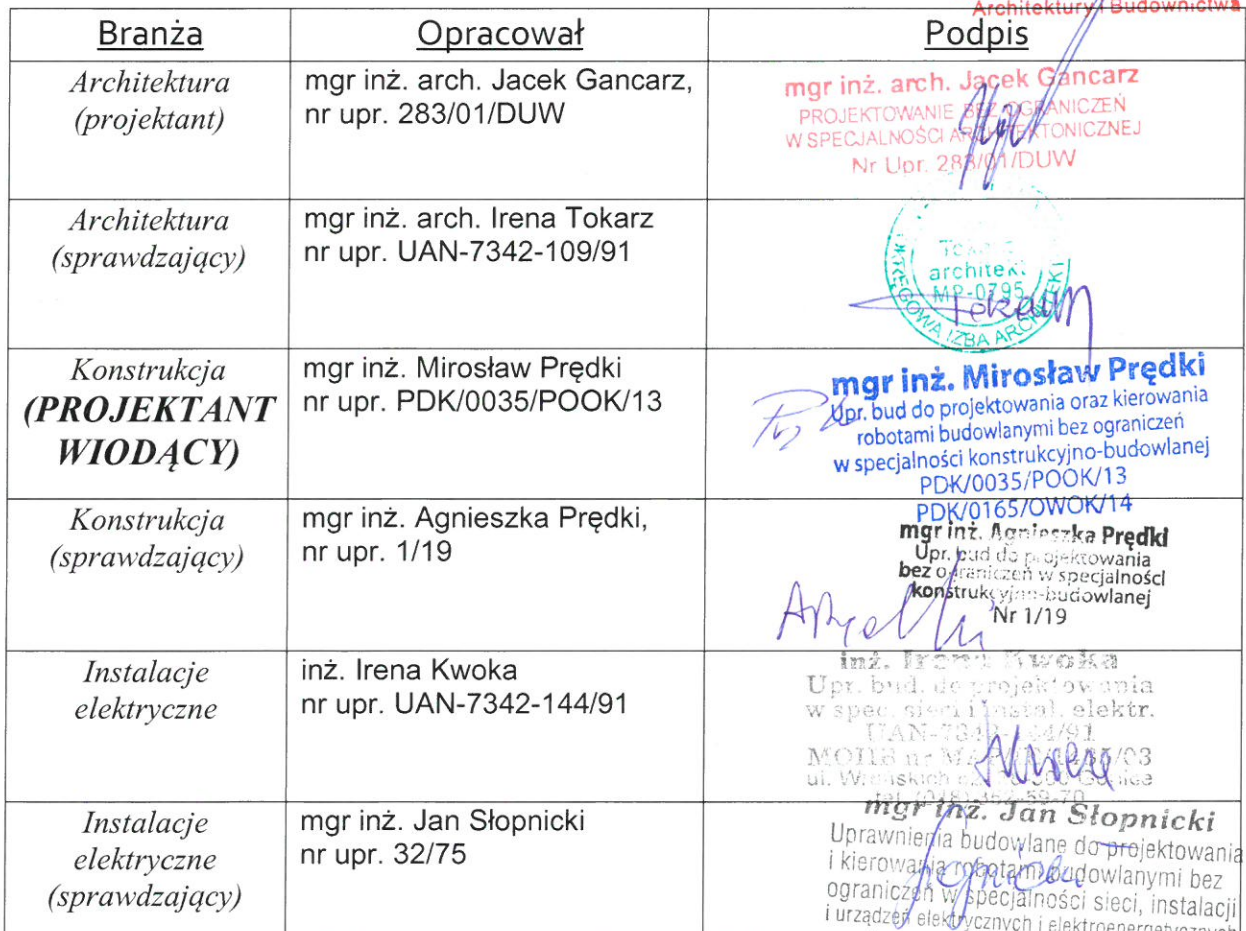 Architektury i Budownictwa
Branża Opracował Podpis
Architektura
(projektant)
mgr inż. arch. Jacek Gancarz,
nr upr. 283/01/DUW
mgr inż. arch. Jacek Gancarz
PROJEKTOWANIE BEZ OGRANICZEŃ
W SPECJALNOŚCI ARCHITEKTONICZNEJ
Nr Upr. 283/01/DUW
Architektura
(sprawdzający)
mgr inż. arch. Irena Tokarz
nr upr. UAN-7342-109/91
Tokarz
architekt
MP-0795
OKRĘGOWA IZBA
Tokarz
Konstrukcja
(PROJEKTANT
WIODĄCY)
mgr inż. Mirosław Prędki
nr upr. PDK/0035/POOK/13
mgr inż. Mirosław Prędki
Upr. bud do projektowania oraz kierowania
robotami budowlanymi bez ograniczeń
w specjalności konstrukcyjno-budowlanej
PDK/0035/POOK/13
PDK/0165/OWOK/14
Konstrukcja
(sprawdzający)
mgr inż. Agnieszka Prędki,
nr upr. 1/19
mgr inż. Agnieszka Prędki
Upr. bud do projektowania
bez ograniczeń w specjalności
konstrukcyjno-budowlanej
Nr 1/19
Instalacje
elektryczne
inż. Irena Kwoka
nr upr. UAN-7342-144/91
inż. Irena Kwoka
Upr. bud. do projektowania
w spec. sieci i instal. elektr.
UAN-7342-144/91
MOIIB nr
ul.
Instalacje
elektryczne
(sprawdzający)
mgr inż. Jan Słopnicki
nr upr. 32/75
mgr inż. Jan Słopnicki
Uprawnienia budowlane do projektowania
i kierowania robotami budowlanymi bez
ograniczeń w specjalności sieci, instalacji
i urządzeń elektrycznych i elektroenergetycznych